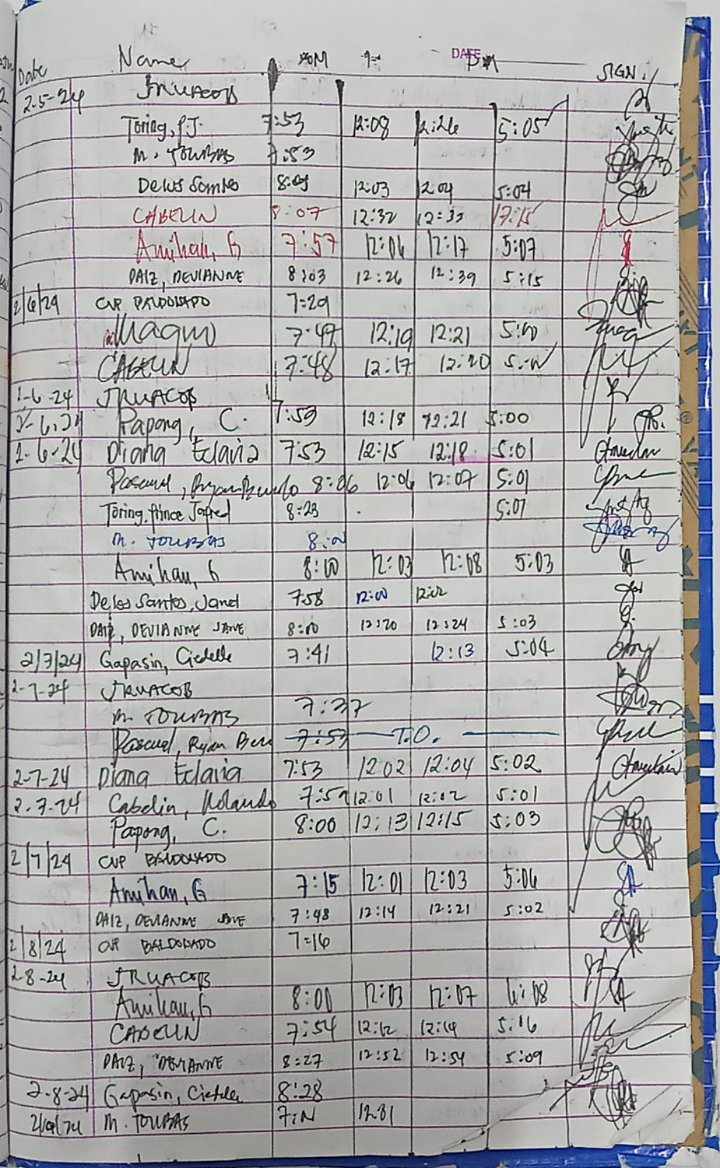 Date Name AM DATE PM SIGN.
2-5-24 JRVACOB
Toring, P.J. 7:53 12:08 12:26 5:05
M. TOURBAS 7:53
Delos Santos 8:03 12:03 12:04 5:04
CABELIN 8:07 12:32 12:33 17:15
Amihan, G 7:57 12:06 12:17 5:07
DAIZ, DEVIANNE 8:03 12:26 12:39 5:15
2/6/24 CVP BALDONADO 7:29
7:47 12:19 12:21 5:00
CABELIN 7:48 12:17 12:20 5:00
2-6-24 JRVACOB
2-6-24 Papong, C. 7:59 12:18 12:21 5:00
2-6-24 Diana Eclavia 7:53 12:15 12:18 5:01
Pascual, Ryan 8:06 12:06 12:07 5:01
Toring, Prince Jared 8:23 5:07
M. TOURBAS 8:00
Amihan, G 8:00 12:03 12:08 5:03
Delos Santos, Janel 7:58 12:00 12:02
DAIZ, DEVIANNE JANE 8:00 12:20 12:24 5:03
2/7/24 Gapasin, Cielelle 7:41 12:13 5:04
2-7-24 JRVACOB
M. TOURBAS 7:37
Pascual, Ryan 7:53 T.O.
2-7-24 Diana Eclavia 7:53 12:02 12:04 5:02
2-7-24 Cabelin, Rolando 7:59 12:01 12:02 5:01
Papong, C. 8:00 12:13 12:15 5:03
2/7/24 CVP BALDONADO
Amihan, G 7:15 12:01 12:03 5:06
DAIZ, DEVIANNE JANE 7:48 12:14 12:21 5:02
2/8/24 CVP BALDONADO 7:16
2-8-24 JRVACOB
Amihan, G 8:00 12:03 12:07 6:08
CABELIN 7:54 12:12 12:14 5:16
DAIZ, DEVIANNE 8:27 12:52 12:54 5:09
2-8-24 Gapasin, Cielelle 8:28
M. TOURBAS 12:01